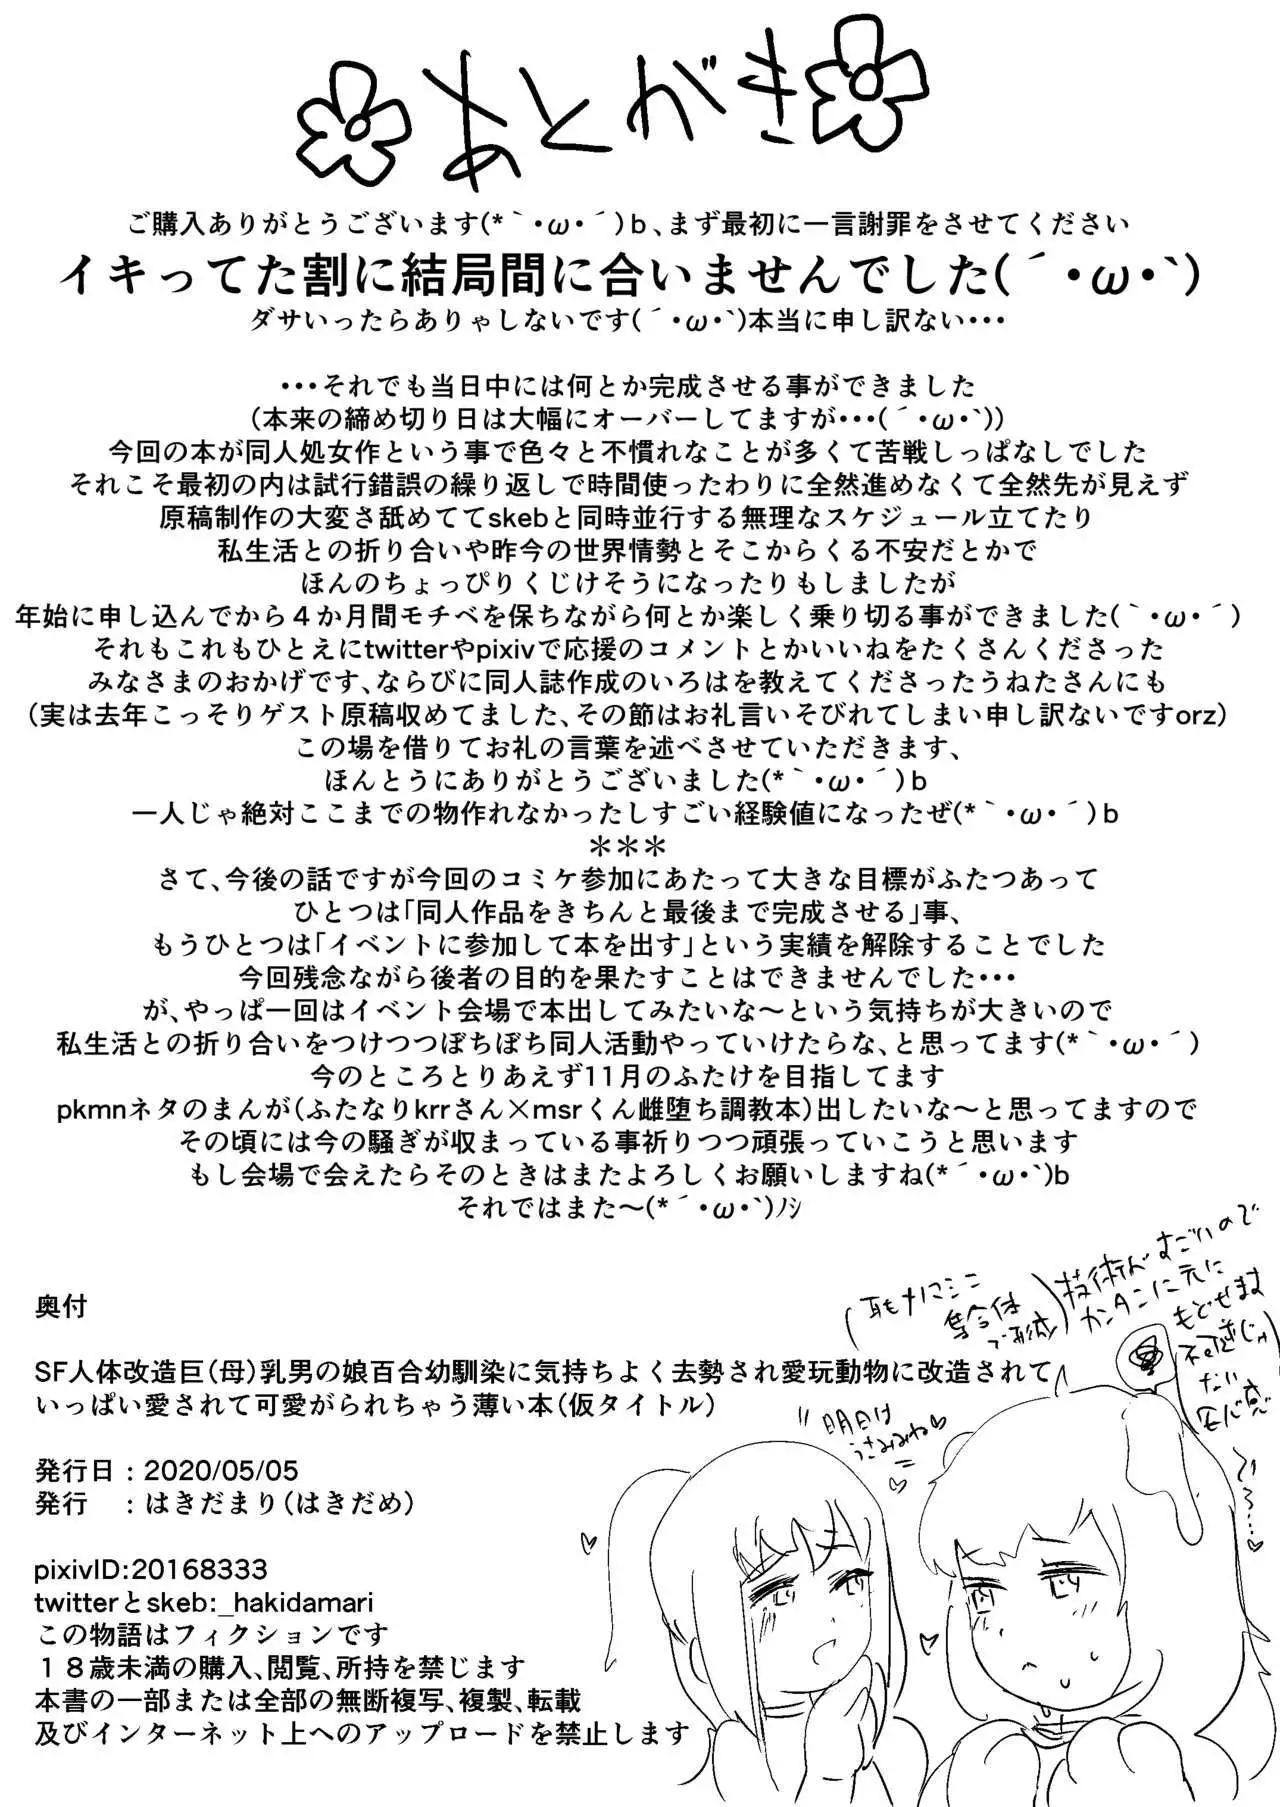 あとがき
ご購入ありがとうございます(*｀・ω・´)ｂ、まず最初に一言謝罪をさせてください
イキってた割に結局間に合いませんでした(´・ω・`)
ダサいったらありゃしないです(´・ω・`)本当に申し訳ない・・・
・・・それでも当日中には何とか完成させる事ができました
(本来の締め切り日は大幅にオーバーしてますが・・・(´・ω・`))
今回の本が同人処女作という事で色々と不慣れなことが多くて苦戦しっぱなしでした
それこそ最初の内は試行錯誤の繰り返しで時間使ったわりに全然進めなくて全然先が見えず
原稿制作の大変さ舐めててskebと同時並行する無理なスケジュール立てたり
私生活との折り合いや昨今の世界情勢とそこからくる不安だとかで
ほんのちょっぴりくじけそうになったりもしましたが
年始に申し込んでから４か月間モチベを保ちながら何とか楽しく乗り切る事ができました(｀・ω・´)
それもこれもひとえにtwitterやpixivで応援のコメントとかいいねをたくさんくださった
みなさまのおかげです、ならびに同人誌作成のいろはを教えてくださったうねたさんにも
(実は去年こっそりゲスト原稿収めてました、その節はお礼言いそびれてしまい申し訳ないですorz)
この場を借りてお礼の言葉を述べさせていただきます、
ほんとうにありがとうございました(*｀・ω・´)ｂ
一人じゃ絶対ここまでの物作れなかったしすごい経験値になったぜ(*｀・ω・´)ｂ
＊＊＊
さて、今後の話ですが今回のコミケ参加にあたって大きな目標がふたつあって
ひとつは「同人作品をきちんと最後まで完成させる」事、
もうひとつは「イベントに参加して本を出す」という実績を解除することでした
今回残念ながら後者の目的を果たすことはできませんでした・・・
が、やっぱ一回はイベント会場で本出してみたいな～という気持ちが大きいので
私生活との折り合いをつけつつぼちぼち同人活動やっていけたらな、と思ってます(*｀・ω・´)
今のところとりあえず11月のふたけを目指してます
pkmnネタのまんが(ふたなりkrrさん×msrくん雌堕ち調教本)出したいな～と思ってますので
その頃には今の騒ぎが収まっている事祈りつつ頑張っていこうと思います
もし会場で会えたらそのときはまたよろしくお願いしますね(*´・ω・`)b
それではまた～(*´・ω・`)ﾉｼ
技術がすごいので
カンタンに元に
もどせます
明日は
うさみみね♡
奥付
SF人体改造巨(母)乳男の娘百合幼馴染に気持ちよく去勢され愛玩動物に改造されて
いっぱい愛されて可愛がられちゃう薄い本(仮タイトル)
発行日：2020/05/05
発行　：はきだまり(はきだめ)
pixivID:20168333
twitterとskeb:_hakidamari
この物語はフィクションです
１８歳未満の購入、閲覧、所持を禁じます
本書の一部または全部の無断複写、複製、転載
及びインターネット上へのアップロードを禁止します